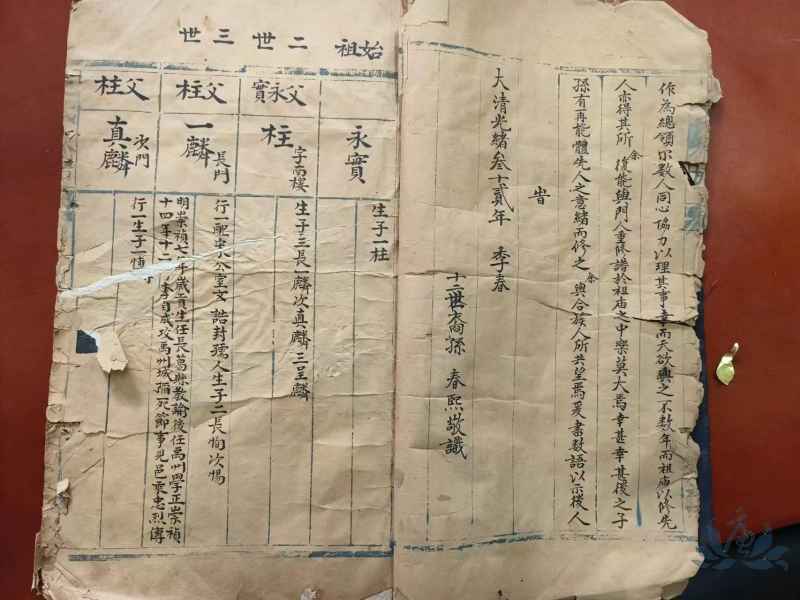 作為總領示數人同心協力以理其事幸而天欲興之不數年而祖庙以修先
人亦得其所余復能與門人重修譜於祖庙之中樂莫大焉幸甚幸甚後之子
孫有再能體先人之意緒而修之余與合族人所共望焉爰書數語以示後人
旹
大清光緒叁十貳年 季春
十二世裔孫 春熙敬識
始祖 二世 三世
永實
生子一柱
父永實
柱
字南樓
生子三長一麟次真麟三呈麟
父柱
一麟
長門
行一配宋公室女 誥封孺人生子二長恂次惕
明崇禎七年歲貢生任長葛縣教諭後任禹州學正崇禎
十四年十二 李自成攻禹州城殉死節事見邑乘忠烈傳
父柱
真麟
次門
行一生子一